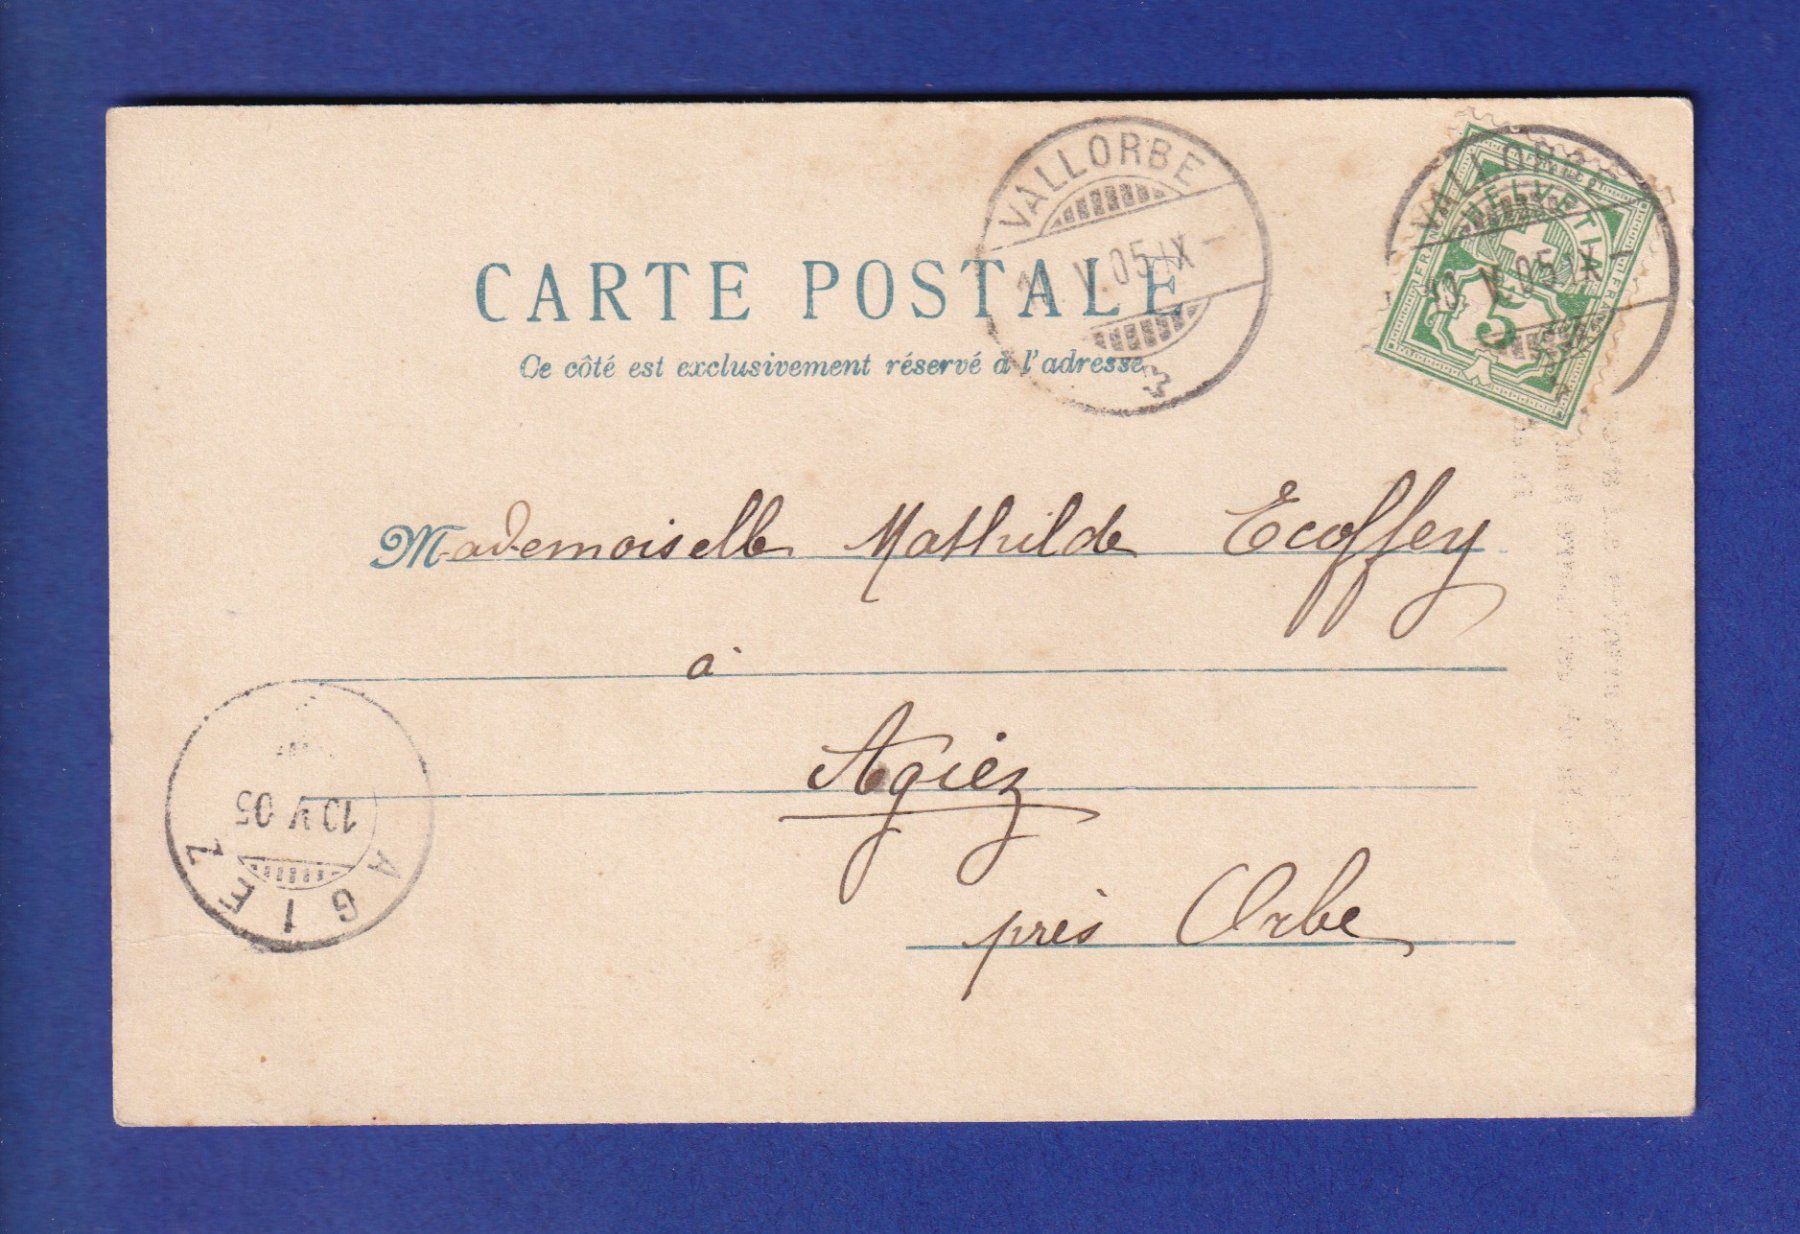 VALLORBE
V.05.IX-
VALLORBE
10.V.05.IX-
HELVETIA
FRANCO
5
CARTE POSTALE
Ce côté est exclusivement réservé à l'adresse
Mademoiselle Mathilde Ecoffey
à
Agiez
près Orbe
10 V 05
AGIEZ